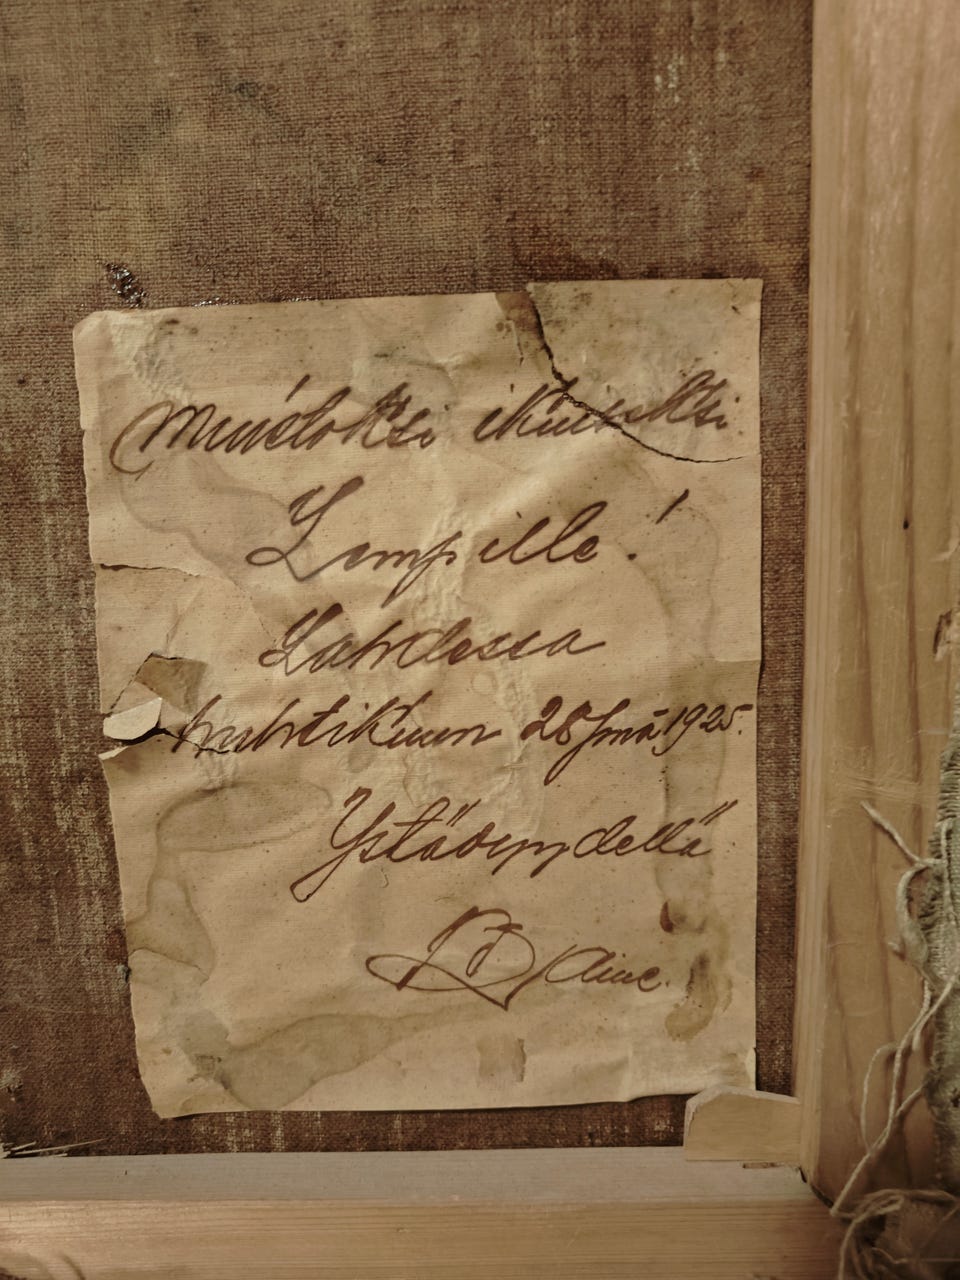 Muistoksi ikuiseksi
Lempille!
Lahdessa
huhtikuun 28 p:nä 1925.
Ystävyydellä
Aine.